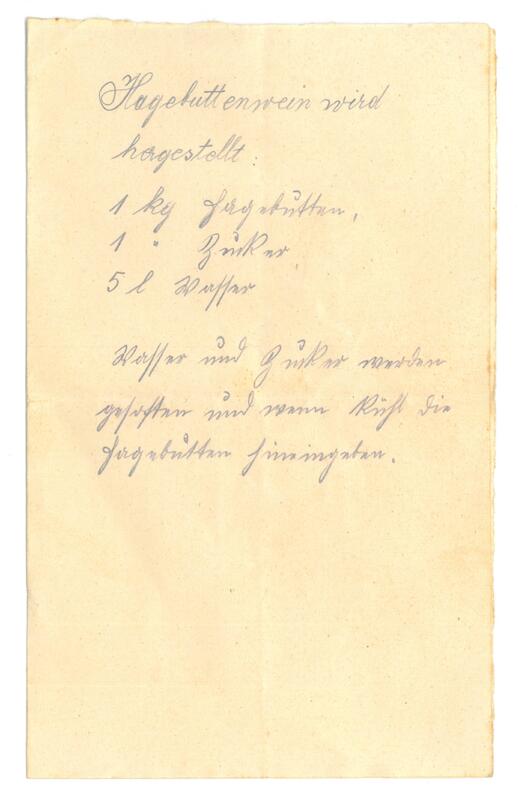 Hagebuttenwein wird
hergestellt:
1 kg Hagebutten,
1 " Zucker
5 l Wasser
Wasser und Zucker werden
gesotten und wenn kühl die
Hagebutten hineingeben.